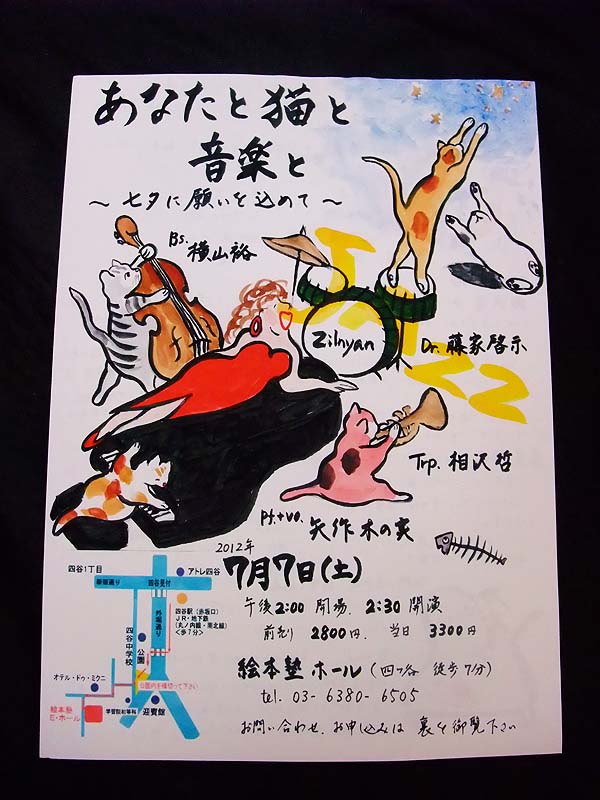 あなたと猫と
音楽と
～七夕に願いを込めて～
Bs. 横山裕
JAZZ
Zilnyan
Dr. 藤家啓示
Trp. 相沢哲
Pf.+vo. 矢作木の実
2012年
7月7日(土)
午後2:00 開場. 2:30 開演
前売り 2800円. 当日 3300円
絵本塾ホール (四ツ谷 徒歩7分)
tel. 03-6380-6505
お問い合わせ、お申し込みは 裏を御覧下さい
四谷1丁目
アトレ四谷
新宿通り
四谷見付
外堀通り
四谷駅（赤坂口）
JR・地下鉄
（丸ノ内線・南北線）
<歩7分>
四谷中学校
公園
公園内を横切って下さい
オテル・ドゥ・ミクニ
絵本塾
E・ホール
学習院初等科
迎賓館